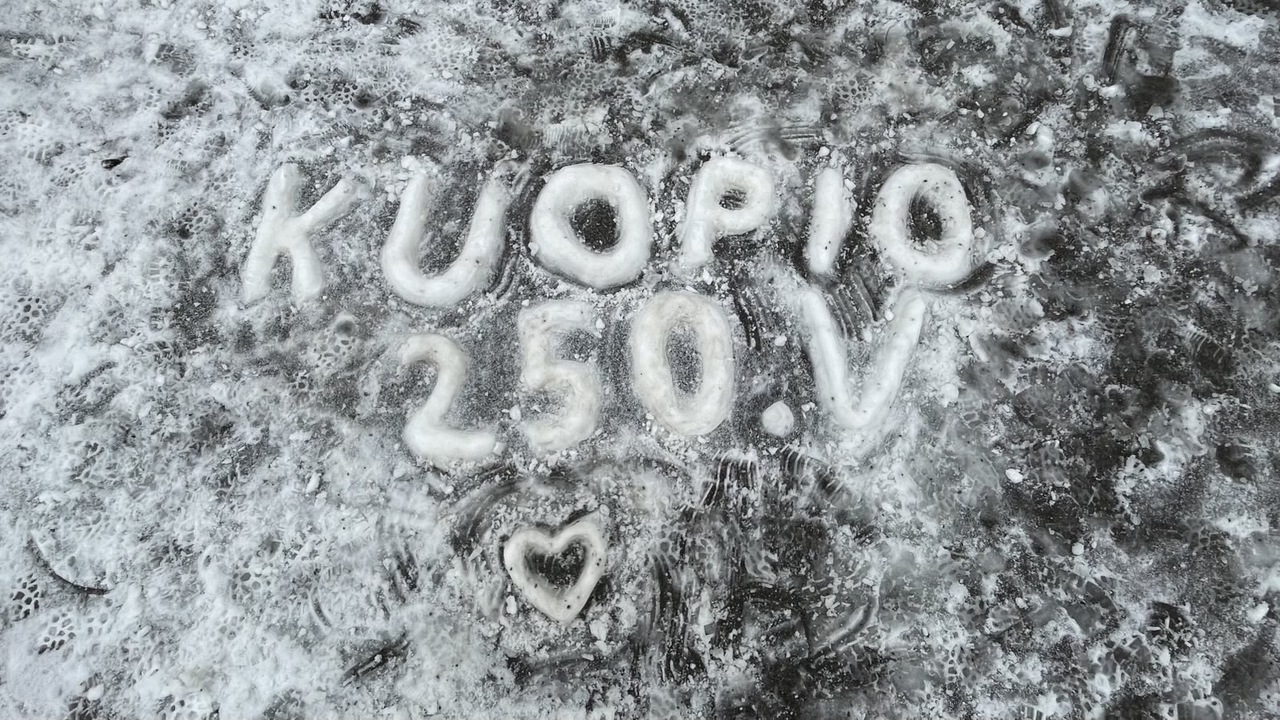 KUOPIO
250.V